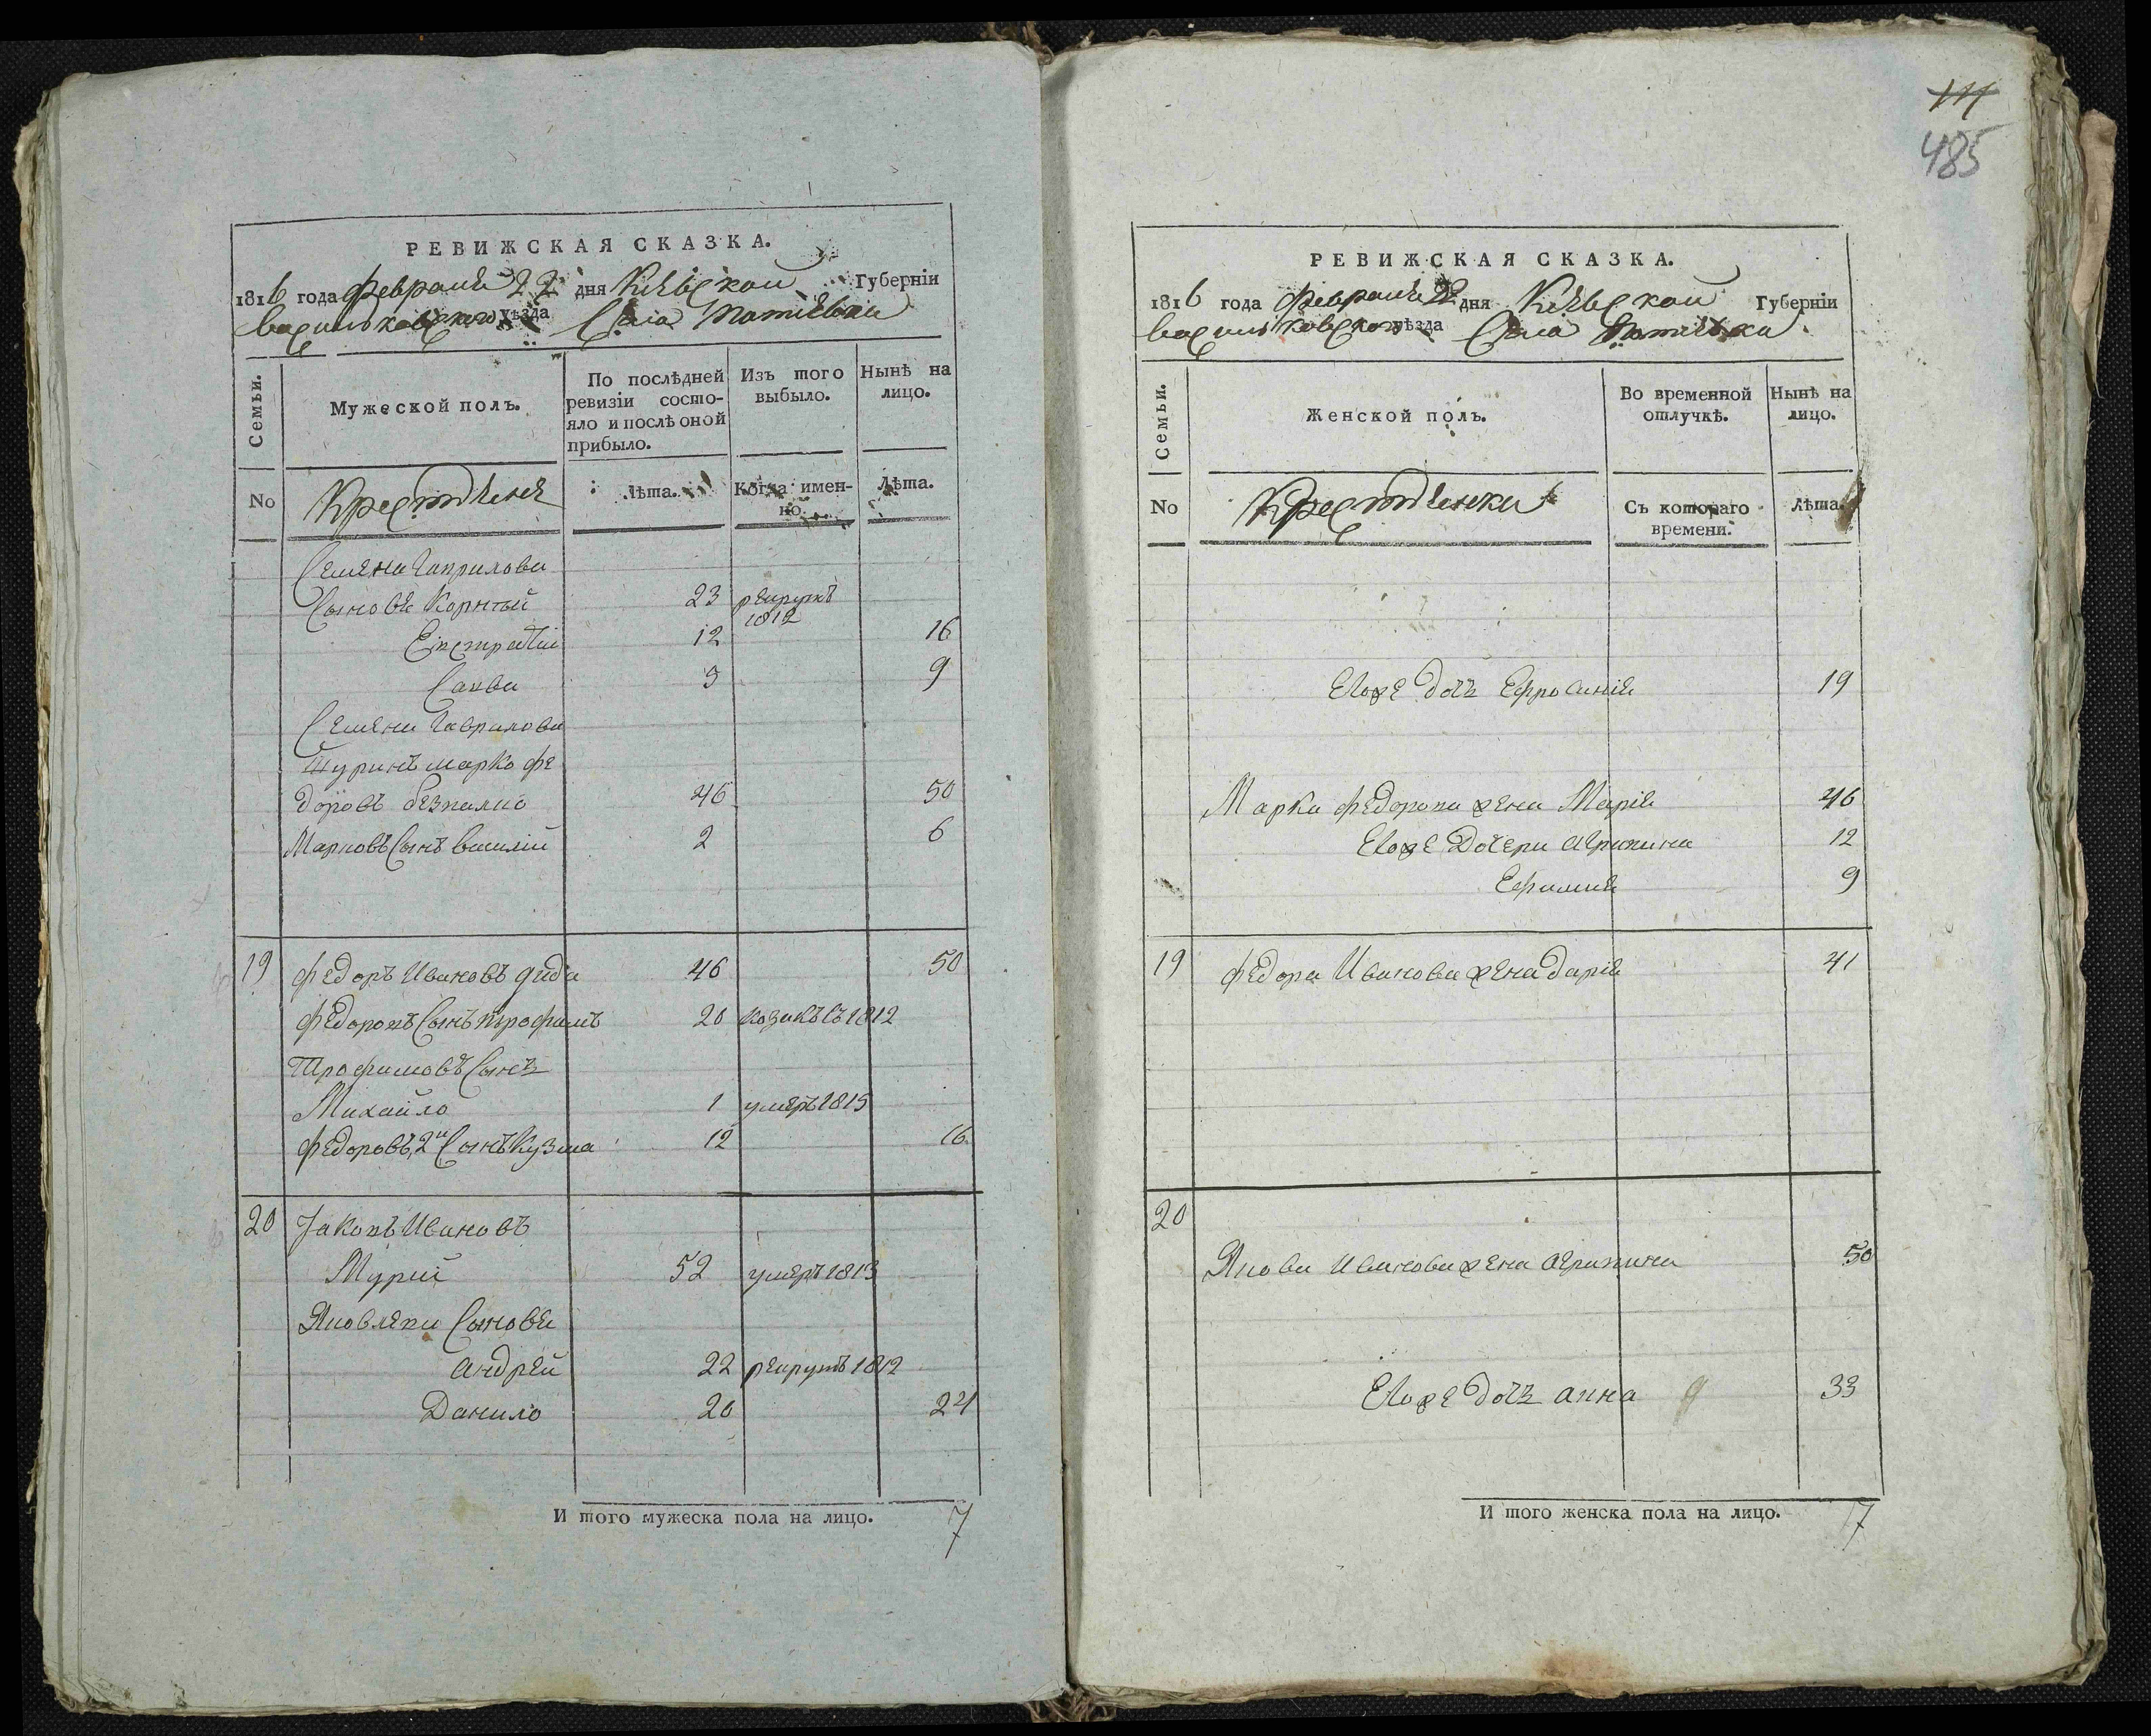 РЕВИЖСКАЯ СКАЗКА.
1816 года Февраля 22 дня Киевской Губерніи
Васильковского Уѣзда Села
Семьи. Мужеской полъ. По послѣдней ревизіи состояло и послѣ оной прибыло. Изъ того выбыло. Нынѣ на лицо.
No Крестьяне Лѣта. Когда именно. Лѣта.
Семена Гаврилова
Сыновя Корнѣй 23 рекрутъ 1812
Евстратій 12 16
Савва 3 9
Семена Гаврилова
Шуринъ Марко Фе
доровъ 46 50
Марковъ Сынъ Василій 2 6
19 Федоръ Ивановъ 46 50
Федоровъ Сынъ Трофимъ 20 козакъ съ 1812
Трофимовъ Сынъ
Михайло 1 умеръ 1815
Федоровъ 2й Сынъ Кузма 12 16
20 Іаковъ Ивановъ
Мурій 52 умеръ 1813
Яковлеви Сыновя
Андрей 22 рекрутъ 1812
Данило 20 24
И того мужеска пола на лицо. 7
111
485
РЕВИЖСКАЯ СКАЗКА.
1816 года Февраля 22 дня Киевской Губерніи
Васильковского Уѣзда Села
Семьи. Женской полъ. Во временной отлучкѣ. Нынѣ на лицо.
No Крестьянки Съ котораго времени. Лѣта.
Егоже дочь Ефросинія 19
Марка Федорова жена Марія 46
Егоже Дочери Агрипина 12
Ефимия 9
19 Федора Иванова жена Дарія 41
20
Якова Иванова жена Агрипина 50
Егоже дочь Анна 33
И того женска пола на лицо. 7